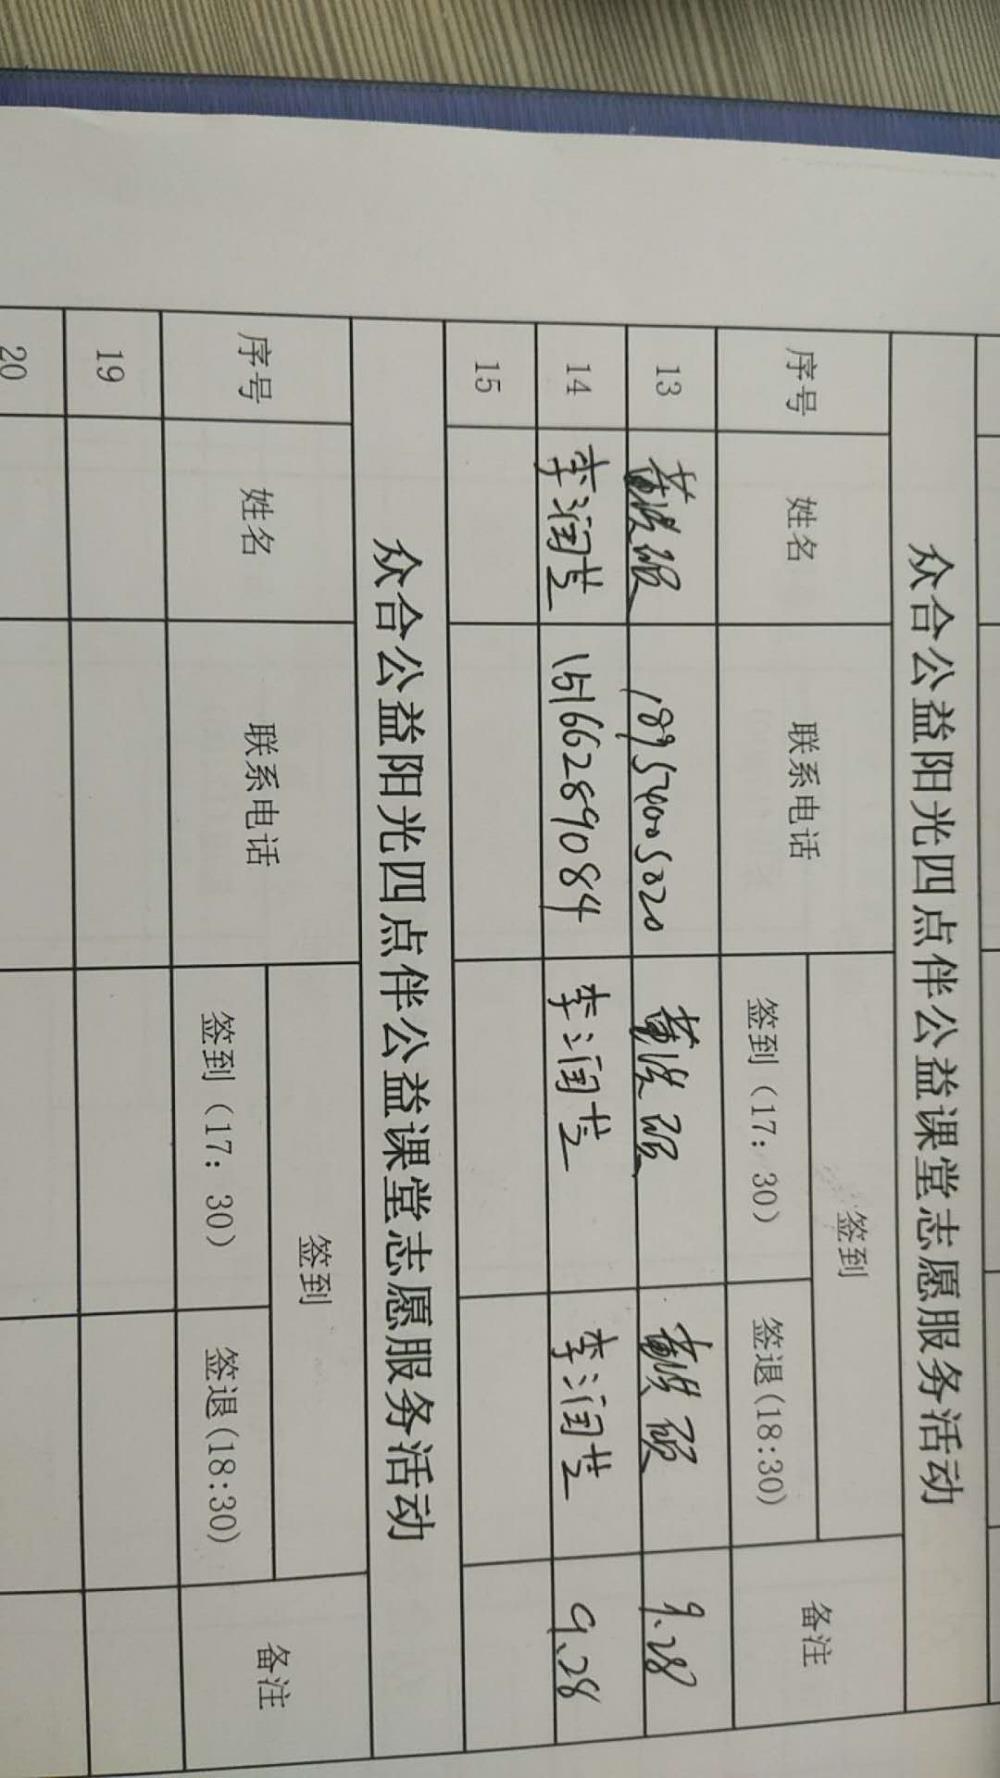 众合公益阳光四点伴公益课堂志愿服务活动
序号 姓名 联系电话 签到 备注
签到（17：30） 签退(18:30)
13 黄浩硕 18954005020 黄浩硕 黄浩硕 9.28
14 李润芝 15166289084 李润芝 李润芝 9.28
15
众合公益阳光四点伴公益课堂志愿服务活动
序号 姓名 联系电话 签到 备注
签到（17：30） 签退(18:30)
19
20